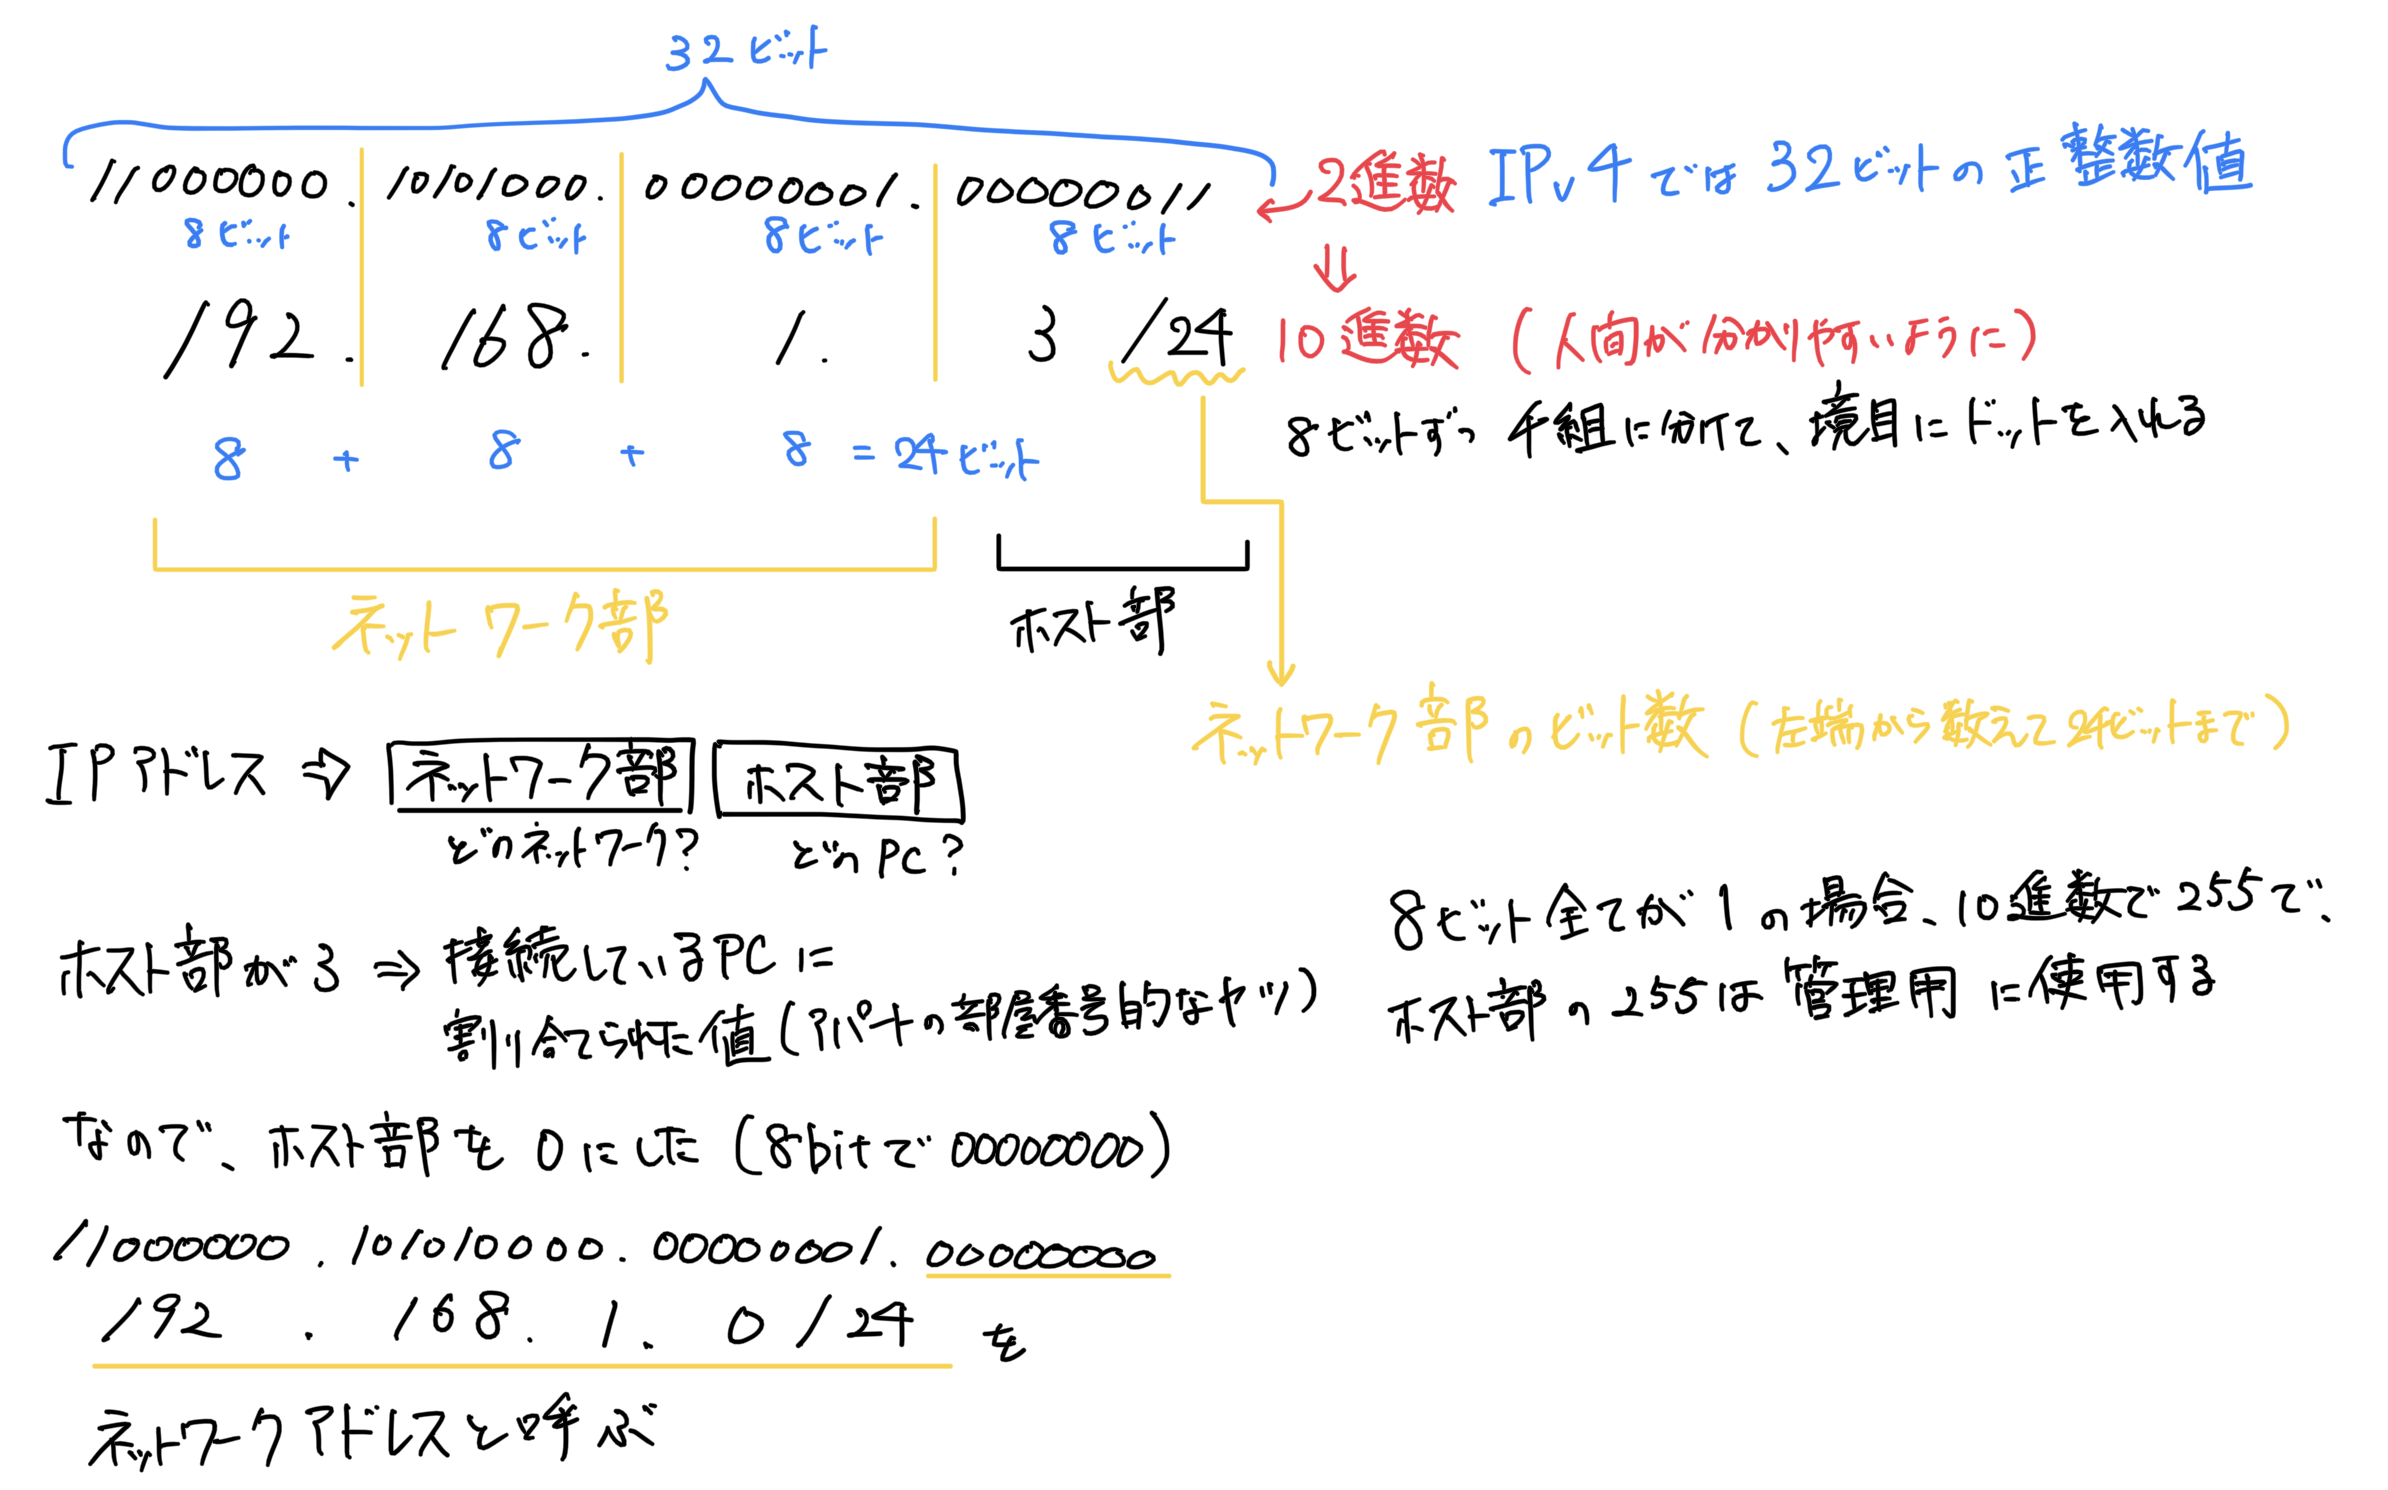 32ビット
11000000.10101000.00000001.00000011
2進数
IPv4では32ビットの正整数値
8ビット 8ビット 8ビット 8ビット
192.168.1.3/24
10進数(人間が分かりやすいように)
8ビットずつ4組に分けて、境目にドットを入れる
8+8+8=24ビット
ネットワーク部
ホスト部
ネットワーク部のビット数(左端から数えて24ビットまで)
IPアドレス⇨ ネットワーク部 ホスト部
どのネットワーク? どのPC?
8ビット全てが1の場合、10進数で255で、
ホスト部の255は管理用に使用する
ホスト部が3⇒接続しているPCに
割り合てられた値(アパートの部屋番号的なヤツ)
なので、ホスト部を0にした(8bitで00000000)
11000000.10101000.00000001.00000000
192.168.1.0/24 を
ネットワークアドレスと呼ぶ